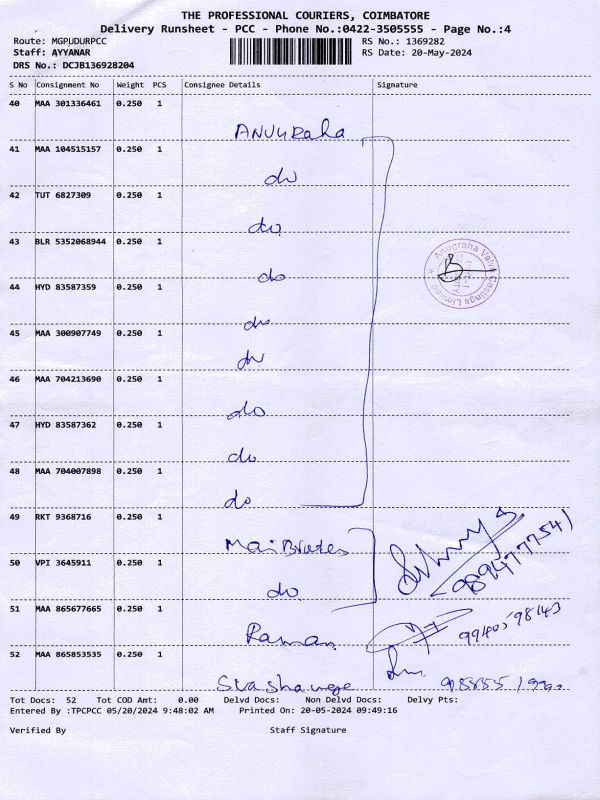 THE PROFESSIONAL COURIERS, COIMBATORE
Delivery Runsheet - PCC - Phone No.:0422-3505555 - Page No.:4
Route: MGPUDURPCC RS No.: 1369282
Staff: AYYANAR RS Date: 20-May-2024
DRS No.: DCJB136928204
S No Consignment No Weight PCS Consignee Details Signature
40 MAA 301336461 0.250 1
ANUGRaha
41 MAA 104515157 0.250 1
do
42 TUT 6827309 0.250 1
do
43 BLR 5352068944 0.250 1
Anugraha Valve Castings Limited
do
44 HYD 83587359 0.250 1
do
45 MAA 300907749 0.250 1
do
46 MAA 704213690 0.250 1
do
47 HYD 83587362 0.250 1
do
48 MAA 704007898 0.250 1
do
49 RKT 9368716 0.250 1
9894777541
50 VPI 3645911 0.250 1
do
51 MAA 865677665 0.250 1
Raman 9940598143
52 MAA 865853535 0.250 1
Tot Docs: 52 Tot COD Amt: 0.00 Delvd Docs: Non Delvd Docs: Delvy Pts:
Entered By :TPCPCC 05/20/2024 9:48:02 AM Printed On: 20-05-2024 09:49:16
Verified By Staff Signature